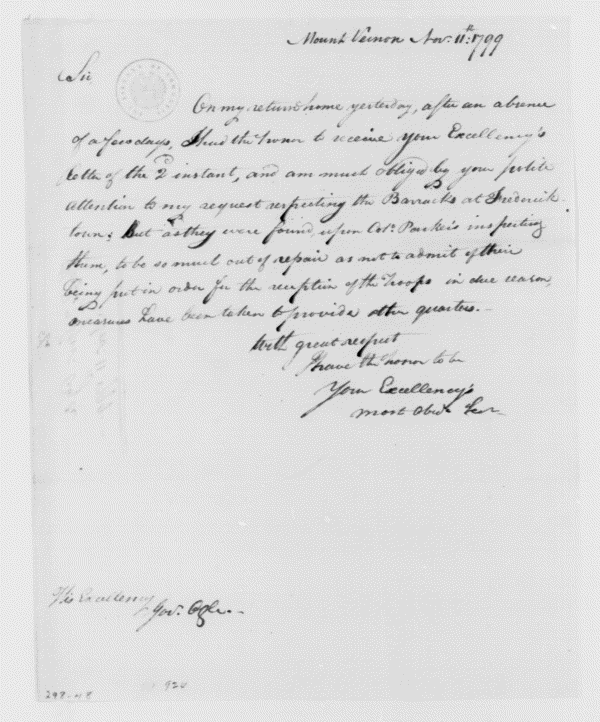 Mount Vernon Nov. 11th: 1799
Sir,
On my return home yesterday, after an absence
of a few days, I had the honor to receive your Excellency's
letter of the 2d instant, and am much oblig'd by your polite
attention to my request respecting the Barracks at Frederick-
town; But as they were found, upon Colo. Parker's inspecting
them, to be so much out of repair as not to admit of their
being put in order for the reception of the Troops in due season,
measures have been taken to provide other quarters.—
With great respect
I have the honor to be
Your Excellency's
most Obed. Ser
His Excellency
Gov. Ogle.
924
298-48